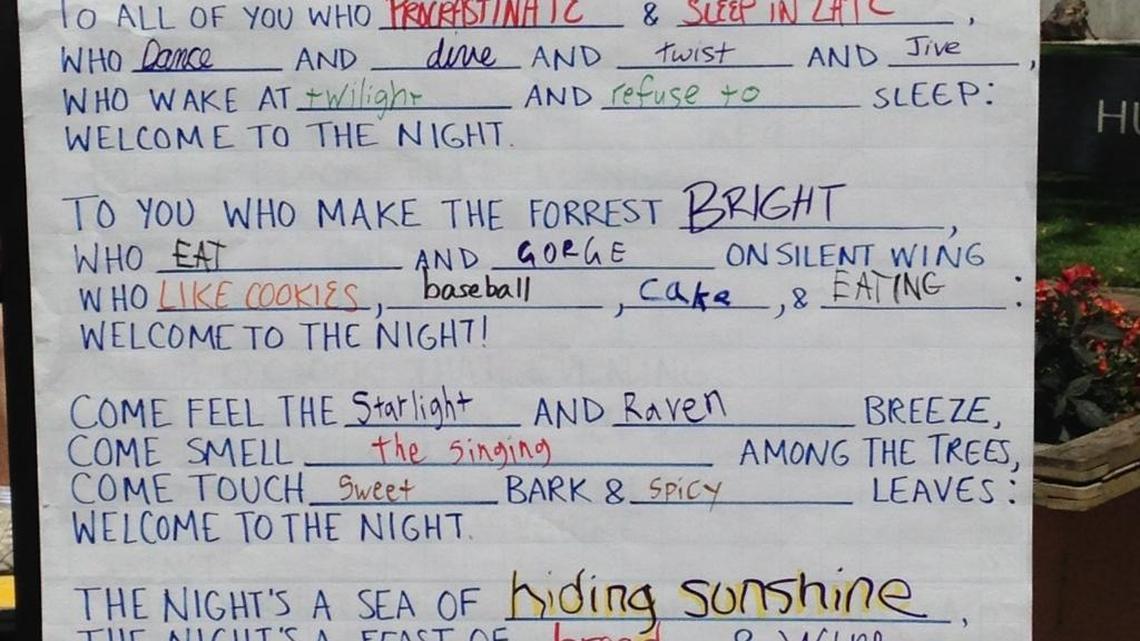 TO ALL OF YOU WHO PROCRASTINATE & SLEEP IN LATE,
WHO Dance AND dine AND twist AND Jive,
WHO WAKE AT twilight AND refuse to SLEEP:
WELCOME TO THE NIGHT.
TO YOU WHO MAKE THE FORREST BRIGHT,
WHO EAT AND GORGE ON SILENT WING
WHO LIKE COOKIES, baseball, cake, & EATING:
WELCOME TO THE NIGHT!
COME FEEL THE Starlight AND Raven BREEZE,
COME SMELL the singing AMONG THE TREES,
COME TOUCH Sweet BARK & SPICY LEAVES:
WELCOME TO THE NIGHT.
THE NIGHT'S A SEA OF hiding sunshine,
THE NIGHT'S A FEAST OF bread &